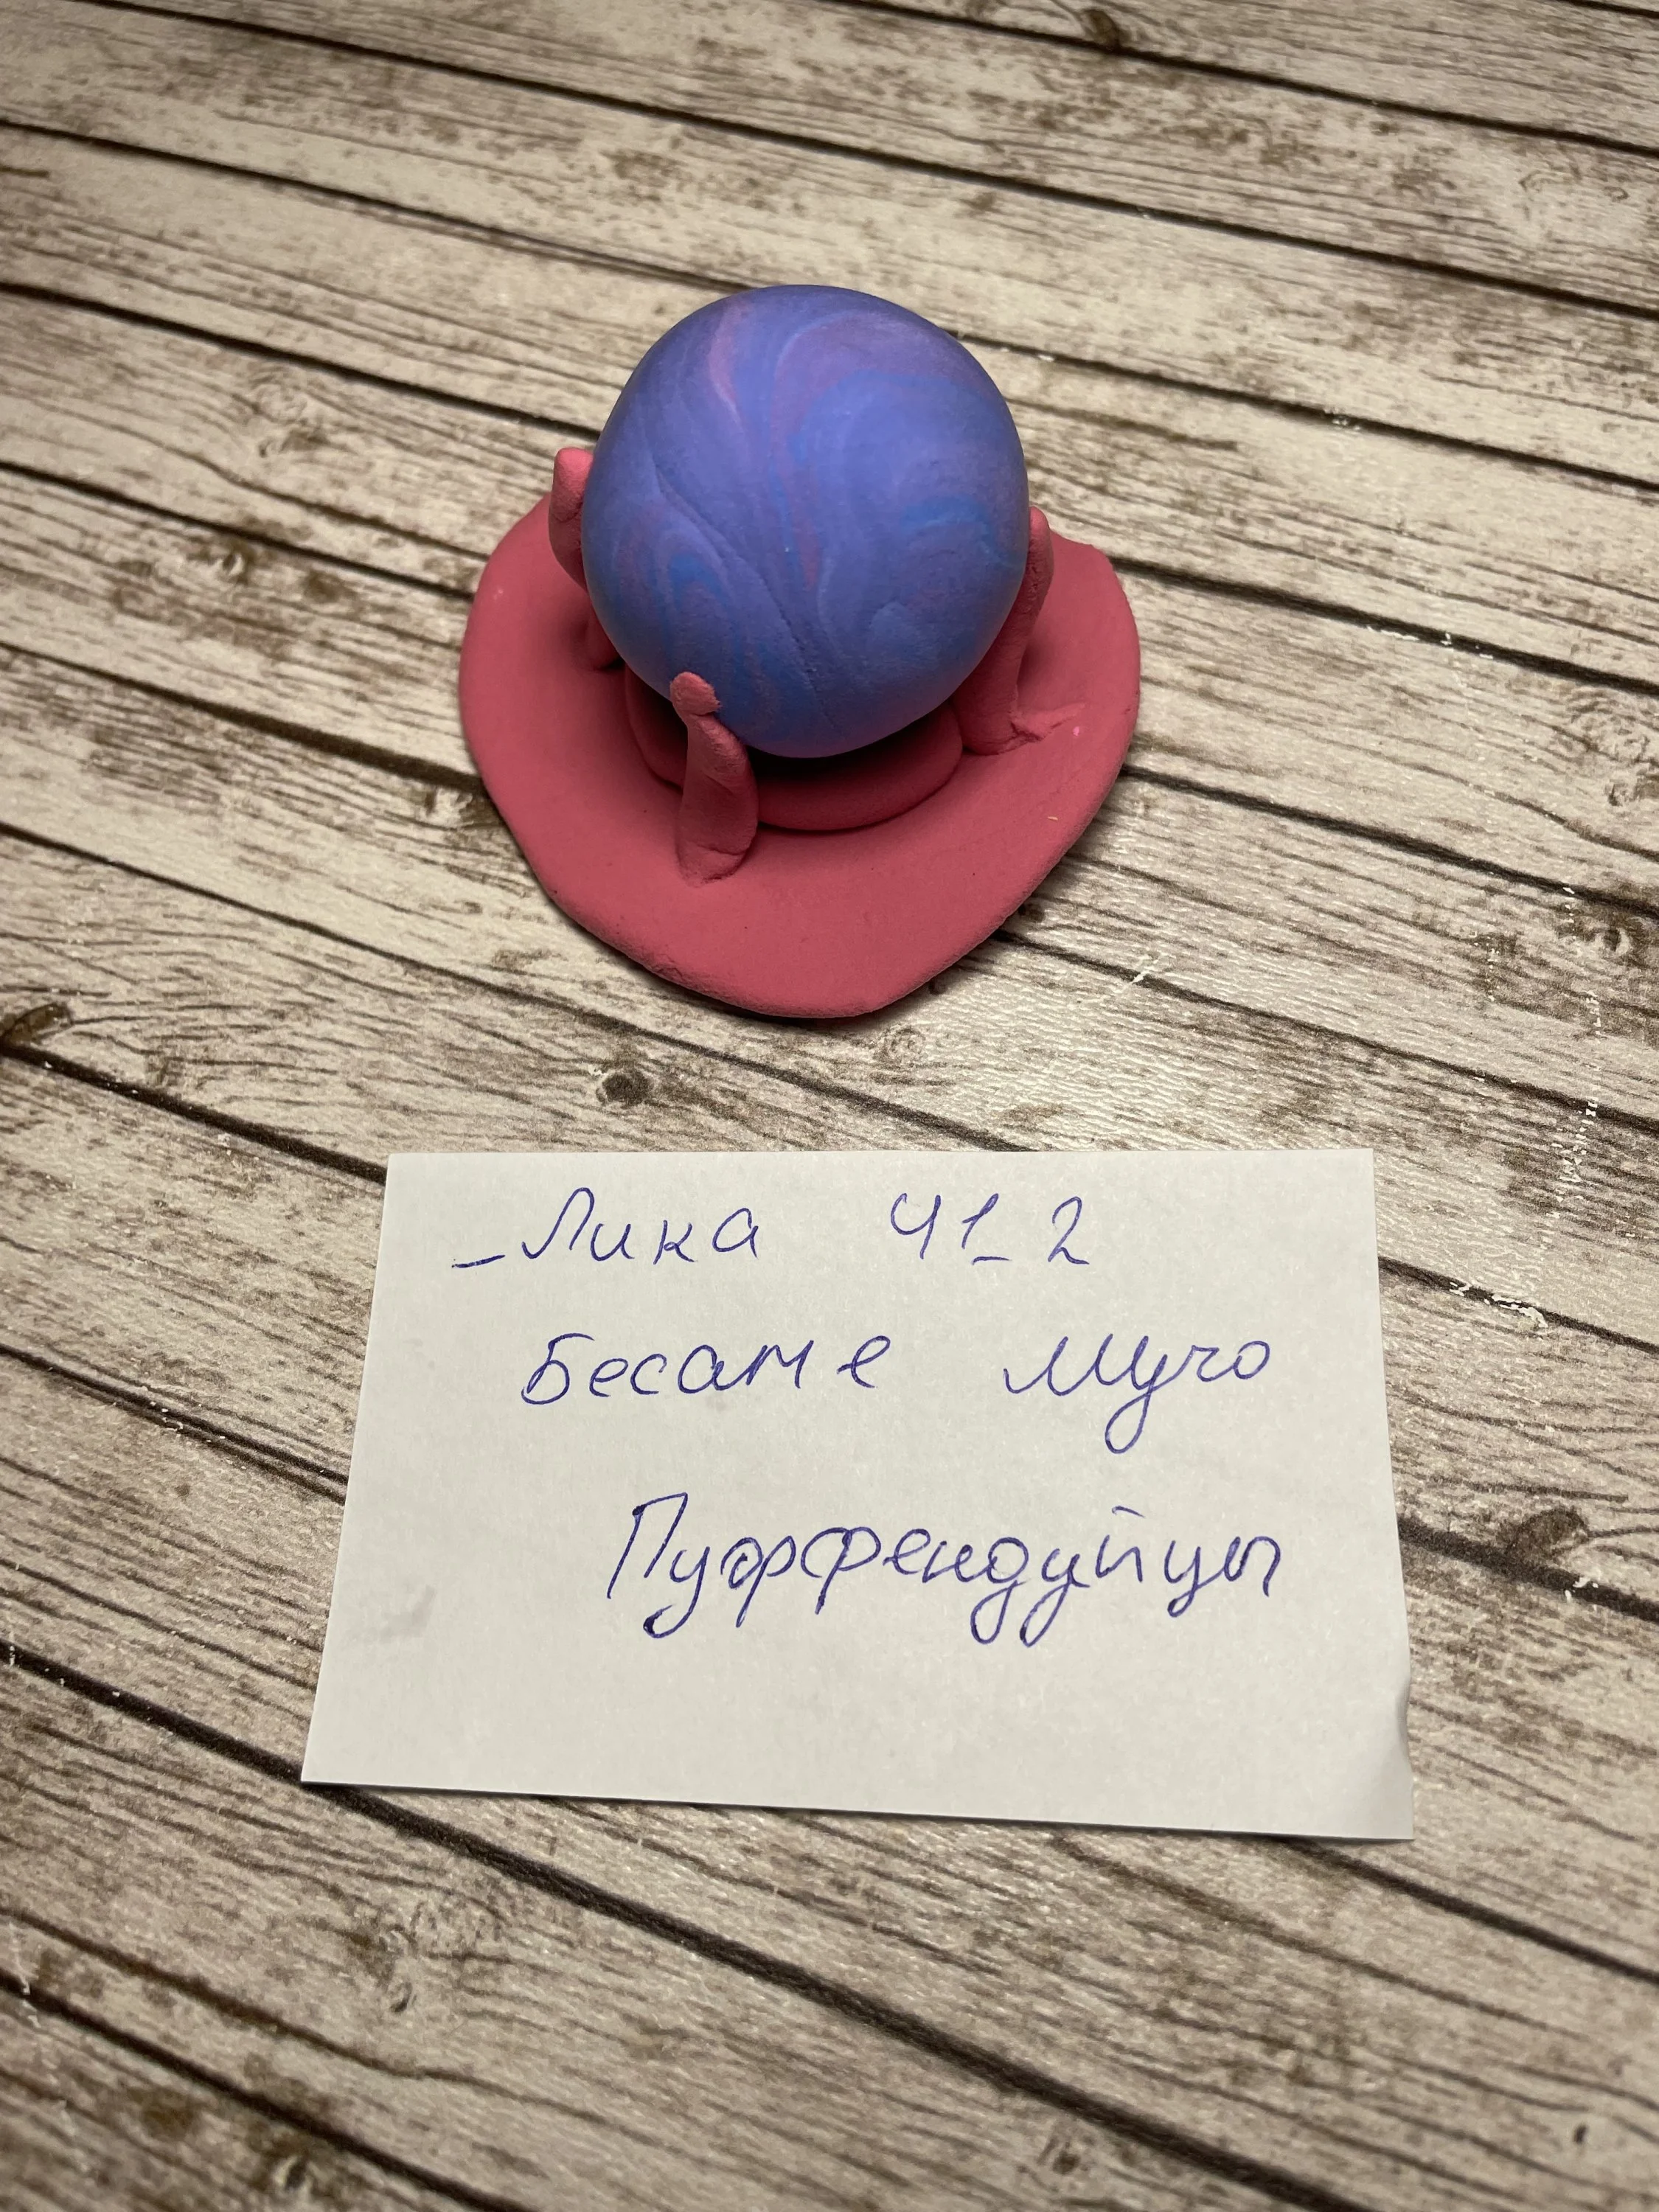 _Лика 41_2
Бесаме мучо
Пуффендуйцы